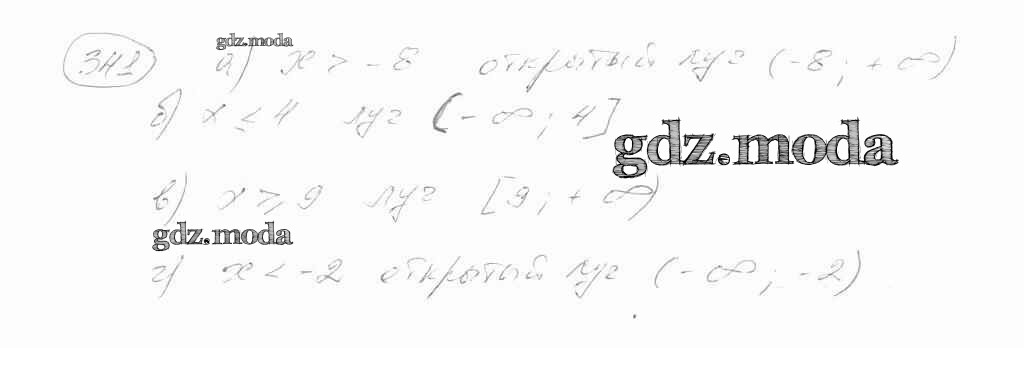 gdz.moda
341 а) x > -8 открытый луг (-8; +∞)
б) x ≤ 4 луг (-∞; 4]
gdz.moda
в) x ≥ 9 луг [9; +∞)
gdz.moda
г) x < -2 открытый луг (-∞; -2)